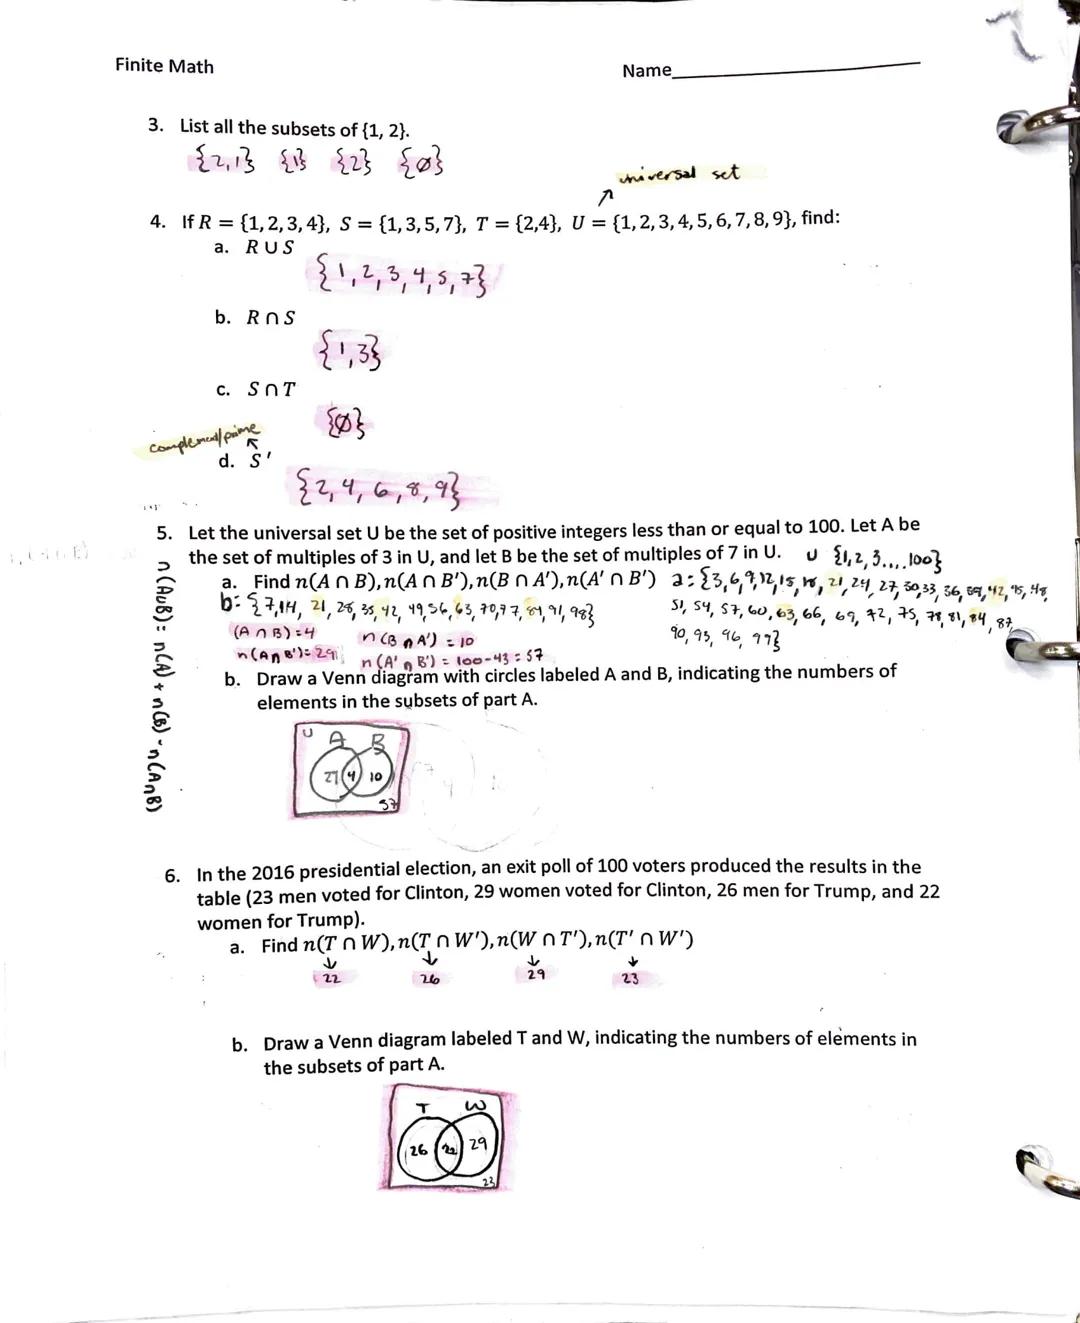 Finite Math
Name
3. List all the subsets of {1, 2}.
{2,1} {1} {2} {∅}
universal set
4. If R = {1,2,3,4}, S = {1,3,5,7}, T = {2,4}, U = {1,2,3,4,5,6,7,8,9}, find:
a. R ∪ S
{1,2,3,4,5,7}
b. R ∩ S
{1,3}
c. S ∩ T
{∅}
complement/prime
d. S'
{2,4,6,8,9}
5. Let the universal set U be the set of positive integers less than or equal to 100. Let A be
the set of multiples of 3 in U, and let B be the set of multiples of 7 in U. U {1,2,3....100}
a. Find n(A ∩ B), n(A ∩ B'), n(B ∩ A'), n(A' ∩ B') a = {3,6,9,12,15,18,21,24,27,30,33,36,39,42,45,48,
51,54,57,60,63,66,69,72,75,78,81,84,87,
90,93,96,99}
b: {7,14,21,28,35,42,49,56,63,70,77,84,91,98}
(A ∩ B) = 4 n(B ∩ A') = 10
n(A ∩ B') = 29 n(A' ∩ B') = 100-43 = 57
n(A∪B) = n(A) + n(B) - n(A∩B)
b. Draw a Venn diagram with circles labeled A and B, indicating the numbers of
elements in the subsets of part A.
U A B
4 10
57
6. In the 2016 presidential election, an exit poll of 100 voters produced the results in the
table (23 men voted for Clinton, 29 women voted for Clinton, 26 men for Trump, and 22
women for Trump).
a. Find n(T ∩ W), n(T ∩ W'), n(W ∩ T'), n(T' ∩ W')
22 26 29 23
b. Draw a Venn diagram labeled T and W, indicating the numbers of elements in
the subsets of part A.
T W
26 22 29
23